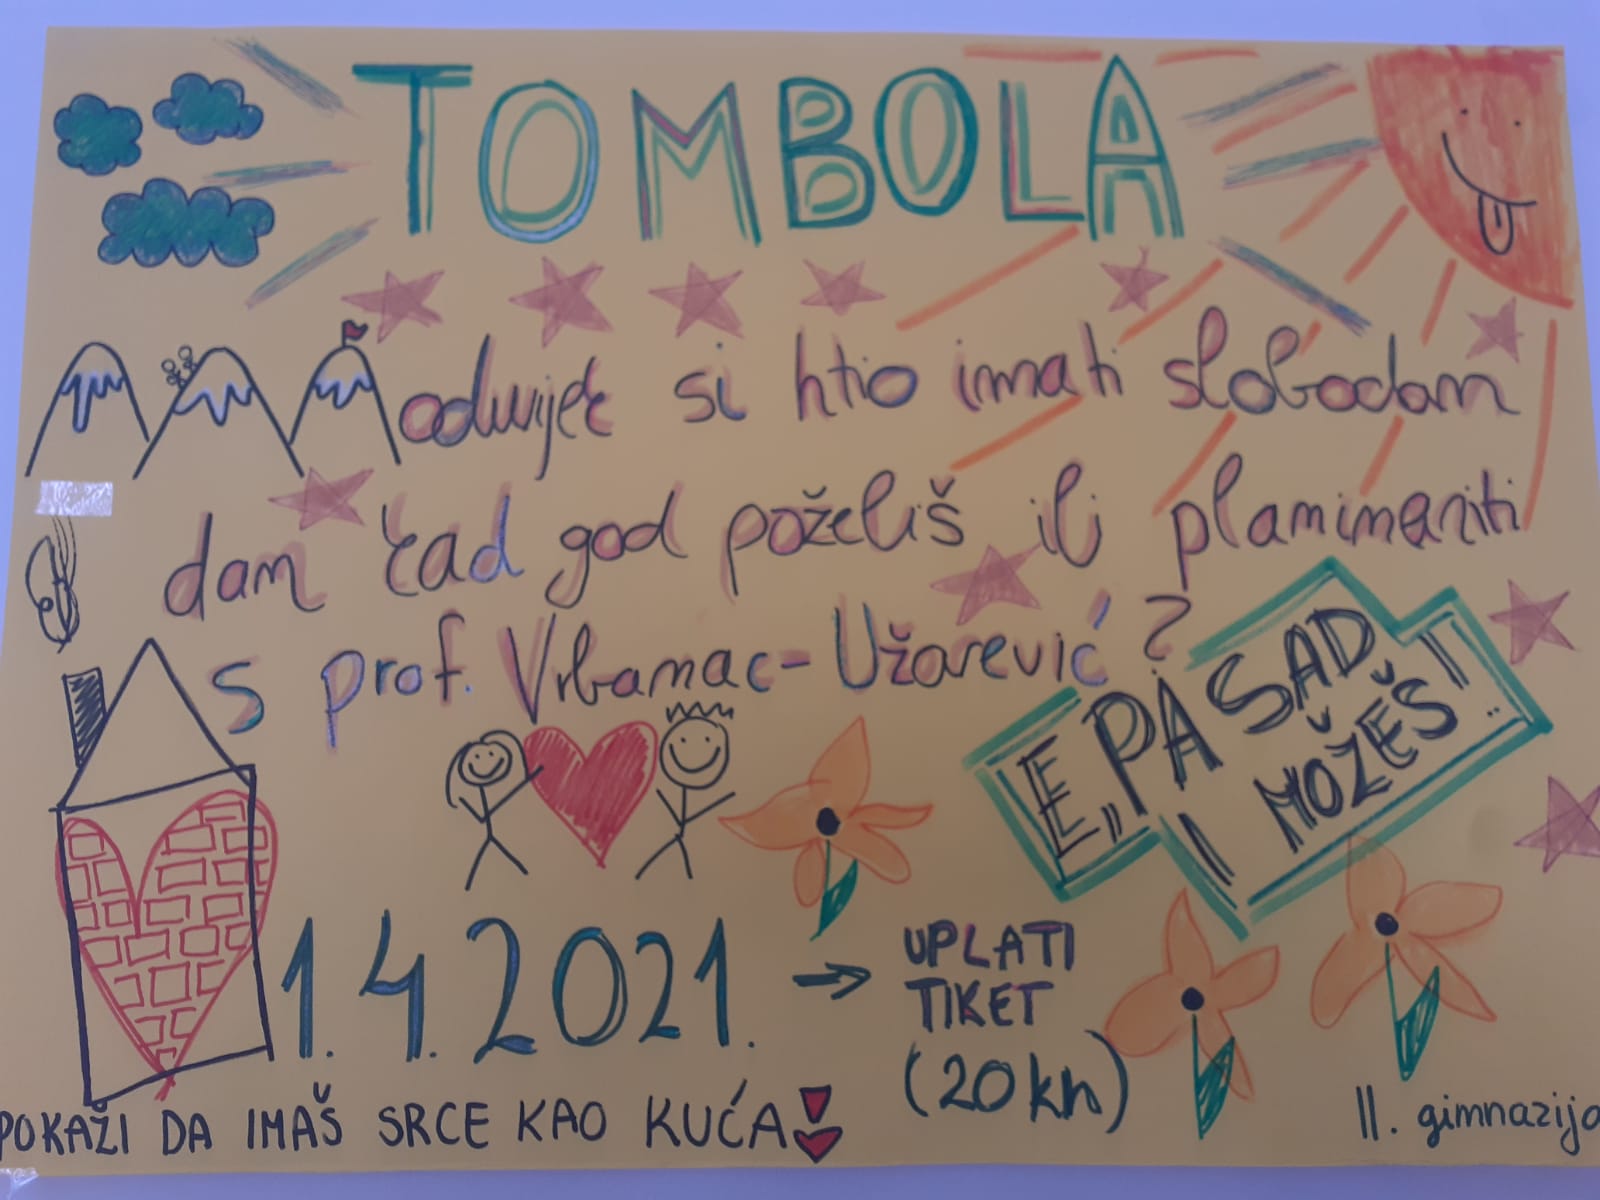 TOMBOLA
oduvijek si htio imati slobodan
dan kad god poželiš ili planinariti
s prof. Vrbanac-Užarević?
E, PA SAD
I MOŽEŠ
1.4.2021. → UPLATI
TIKET
(20 kn)
POKAŽI DA IMAŠ SRCE KAO KUĆA!
II. gimnazija